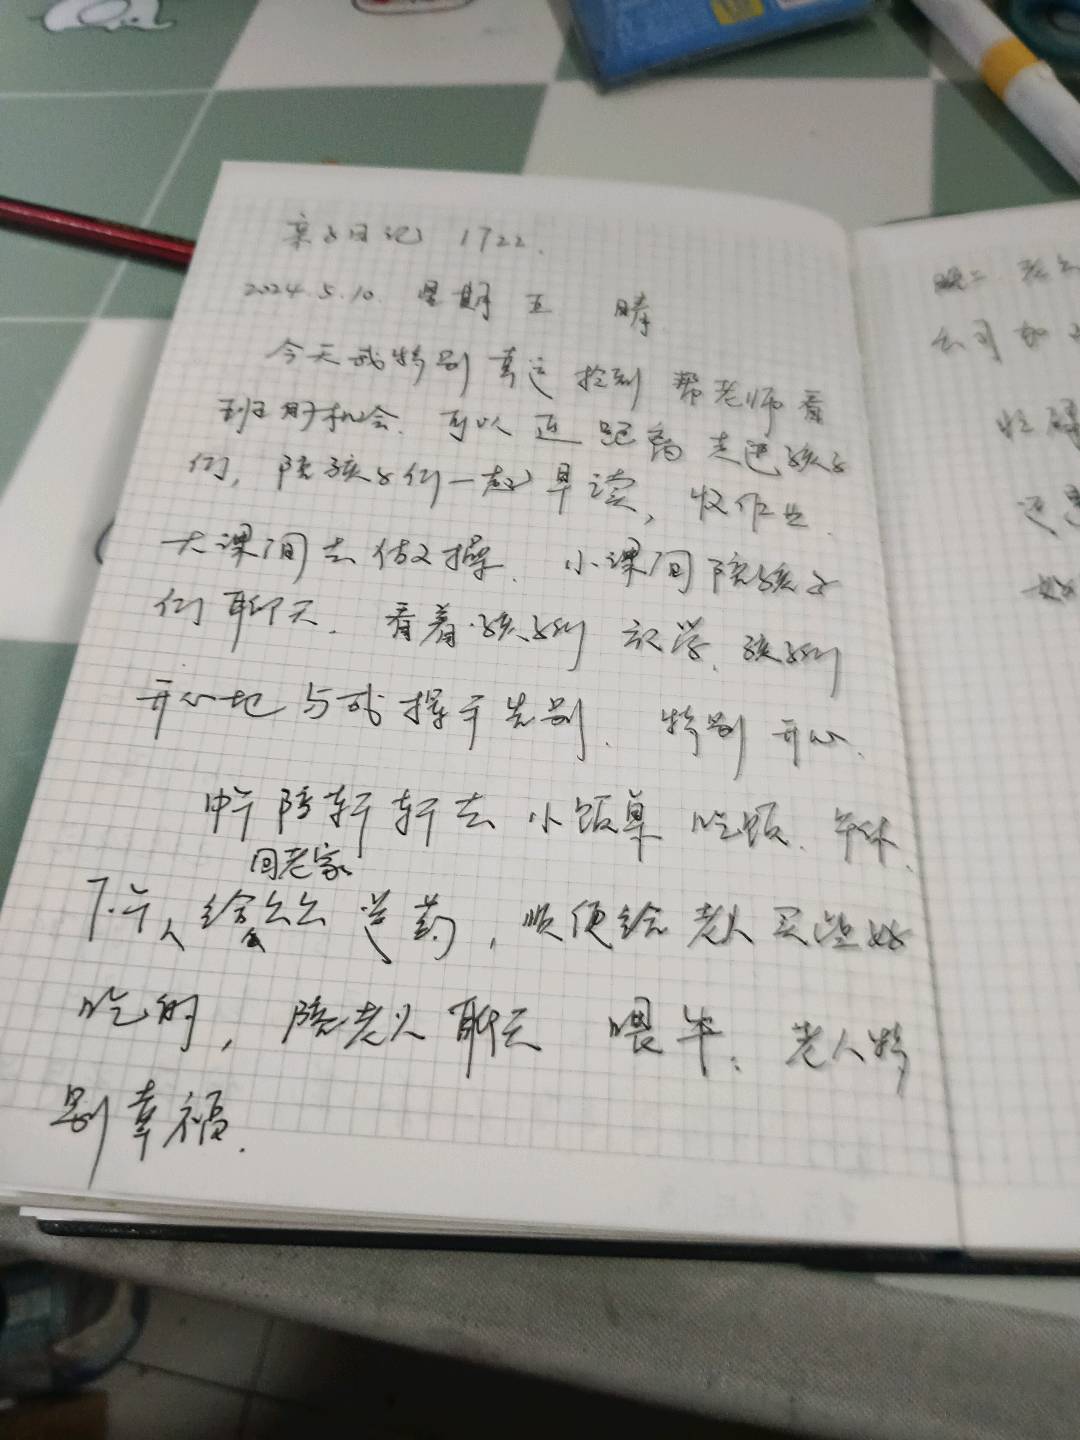 亲子日记 1722.
2024.5.10. 星期五 晴
今天我特别幸运抢到帮老师看
班的机会. 可以近距离走进孩子
们, 陪孩子们一起早读, 收作业.
大课间去做操. 小课间陪孩子
们聊天. 看着孩子们放学, 孩子们
开心地与我握手告别. 特别开心.
中午陪轩轩去小饭桌吃饭. 午休.
回老家
下午, 给公公送药, 顺便给老人买些好
吃的, 陪老人聊天 喂牛. 老人特
别幸福.
晚上
公司